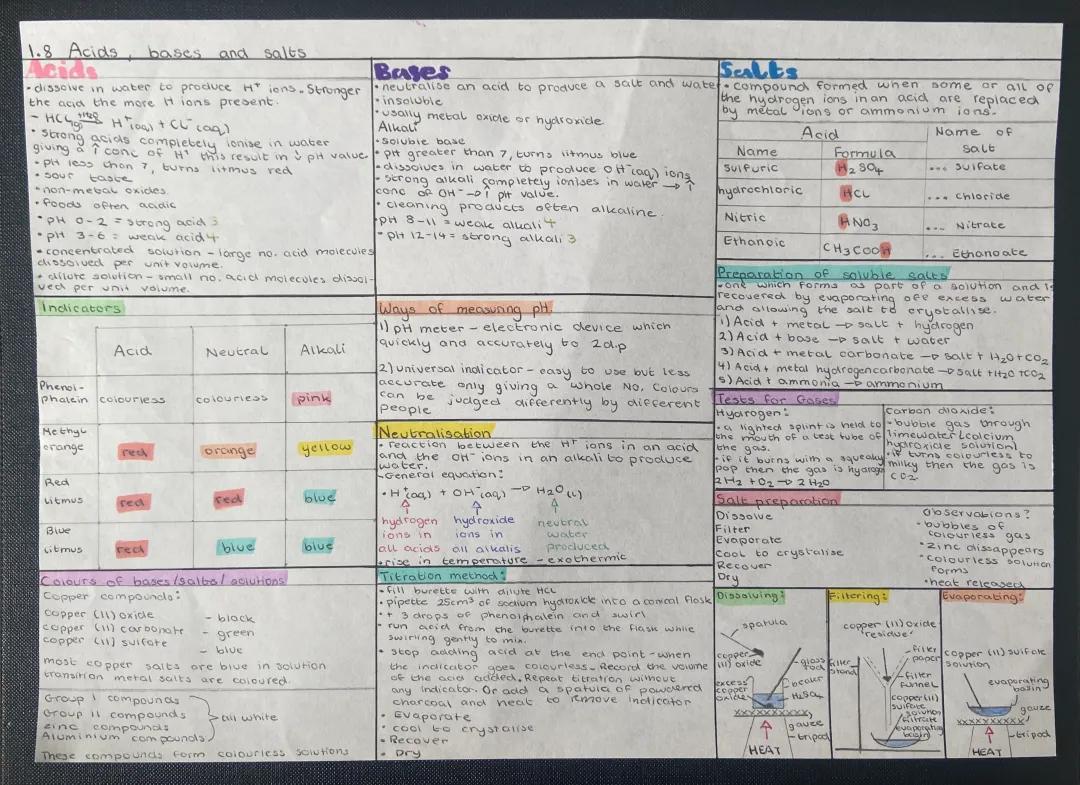 1.8 Acids, bases and salts
Acids
• dissolve in water to produce H⁺ ions. Stronger
the acid the more H ions present.
- HCl(g) →H₂O H⁺(aq) + Cl⁻(aq)
• strong acids completely ionise in water
giving a ↑ conc of H⁺ this result in ↓ pH value
• pH less than 7, turns litmus red
• sour taste
• non-metal oxides.
• foods often acidic
• pH 0-2 = strong acid 3
• pH 3-6 = weak acid 4
• concentrated solution - large no. acid molecules
dissolved per unit volume.
• dilute solution - small no. acid molecules dissol-
ved per unit volume.
Indicators
Acid Neutral Alkali
Phenol-
phalein colourless colourless pink
Methyl
orange red orange yellow
Red
litmus red red blue
Blue
litmus red blue blue
Colours of bases/salts/solutions
Copper compounds:
copper (II) oxide - black
copper (II) carbonate - green
copper (II) sulfate - blue
most copper salts are blue in solution
transition metal salts are coloured.
Group I compounds
Group II compounds
zinc compounds
Aluminium compounds
all white
These compounds form colourless solutions
Bases
• neutralise an acid to produce a salt and water
• insoluble
• usally metal oxide or hydroxide
Alkali
• soluble base
• pH greater than 7, turns litmus blue
• dissolves in water to produce OH⁻(aq) ions
• strong alkali completely ionises in water → ↑
conc of OH⁻ → ↑ pH value.
• cleaning products often alkaline.
• pH 8-11 = weak alkali 4
• pH 12-14 = strong alkali 3
Ways of measuring pH.
1) pH meter - electronic device which
quickly and accurately to 2d.p
2) universal indicator - easy to use but less
accurate only giving a whole No. Colours
can be judged differently by different
people
Neutralisation
• reaction between the H⁺ ions in an acid
and the OH⁻ ions in an alkali to produce
water.
- General equation:
• H⁺(aq) + OH⁻(aq) → H₂O(l)
hydrogen hydroxide neutral
ions in ions in water
all acids all alkalis produced
• rise in temperature - exothermic
Titration method:
• fill burette with dilute HCL
• pipette 25cm³ of sodium hydroxide into a conical flask
• + 3 drops of phenolphalein and swirl
• run acid from the burette into the flask while
swirling gently to mix.
• stop adding acid at the end point - when
the indicator goes colourless. Record the volume
of the acid added. Repeat titration without
any indicator. Or add a spatula of powdered
charcoal and heat to remove indicator
• Evaporate
• cool to crystalise
• Recover
• Dry
Salts
• compound formed when some or all of
the hydrogen ions in an acid are replaced
by metal ions or ammonium ions.
Acid Name of
Name Formula Salt
Sulfuric H₂SO₄ ... sulfate
hydrochloric HCL ... chloride
Nitric HNO₃ ... Nitrate
Ethanoic CH₃COOH ... Ethanoate
Preparation of soluble salts
• one which forms as part of a solution and is
recovered by evaporating off excess water
and allowing the salt to crystallise.
1) Acid + metal → salt + hydrogen
2) Acid + base → salt + water
3) Acid + metal carbonate → salt + H₂O + CO₂
4) Acid + metal hydrogencarbonate → salt + H₂O + CO₂
5) Acid + ammonia → ammonium
Tests for Gases
Hydrogen:
• a lighted splint is held to
the mouth of a test tube of
the gas.
• if it burns with a squeaky
pop then the gas is hydrogen
2H₂ + O₂ → 2H₂O
carbon dioxide:
• bubble gas through
limewater (calcium
hydroxide solution)
• if turns colourless to
milky then the gas is
CO₂.
Salt preparation
Dissolve
Filter
Evaporate
Cool to crystalise
Recover
Dry
Observations?
• bubbles of
colourless gas
• zinc dissappears
• colourless solution
forms
• heat released
Dissolving:
spatula
copper
(II) oxide
glass
rod
beaker
excess
copper
oxide
H₂SO₄
gauze
tripod
HEAT
Filtering:
copper (II) oxide
'residue'
filter
paper
filter
stand
filter
funnel
copper (II)
sulfate
solution
filtrate
evaporating
basin
Evaporating:
copper (II) sulfate
solution
evaporating
basin
gauze
tripod
HEAT